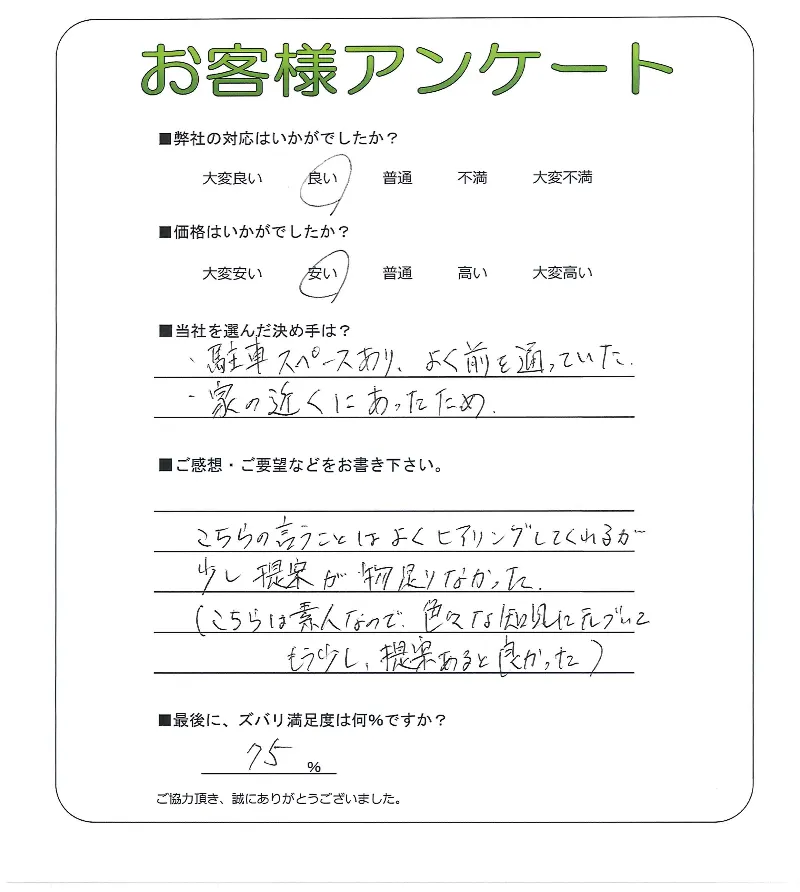 お客様アンケート
■弊社の対応はいかがでしたか？
大変良い 良い 普通 不満 大変不満
■価格はいかがでしたか？
大変安い 安い 普通 高い 大変高い
■当社を選んだ決め手は？
・駐車スペースあり、よく前を通っていた.
・家の近くにあったため.
■ご感想・ご要望などをお書き下さい。
こちらの言うことはよくヒアリングしてくれるが
少し提案が物足りなかった.
(こちらは素人なので、色々な知見に元づいて
もう少し、提案あると良かった)
■最後に、ズバリ満足度は何%ですか？
75 %
ご協力頂き、誠にありがとうございました。